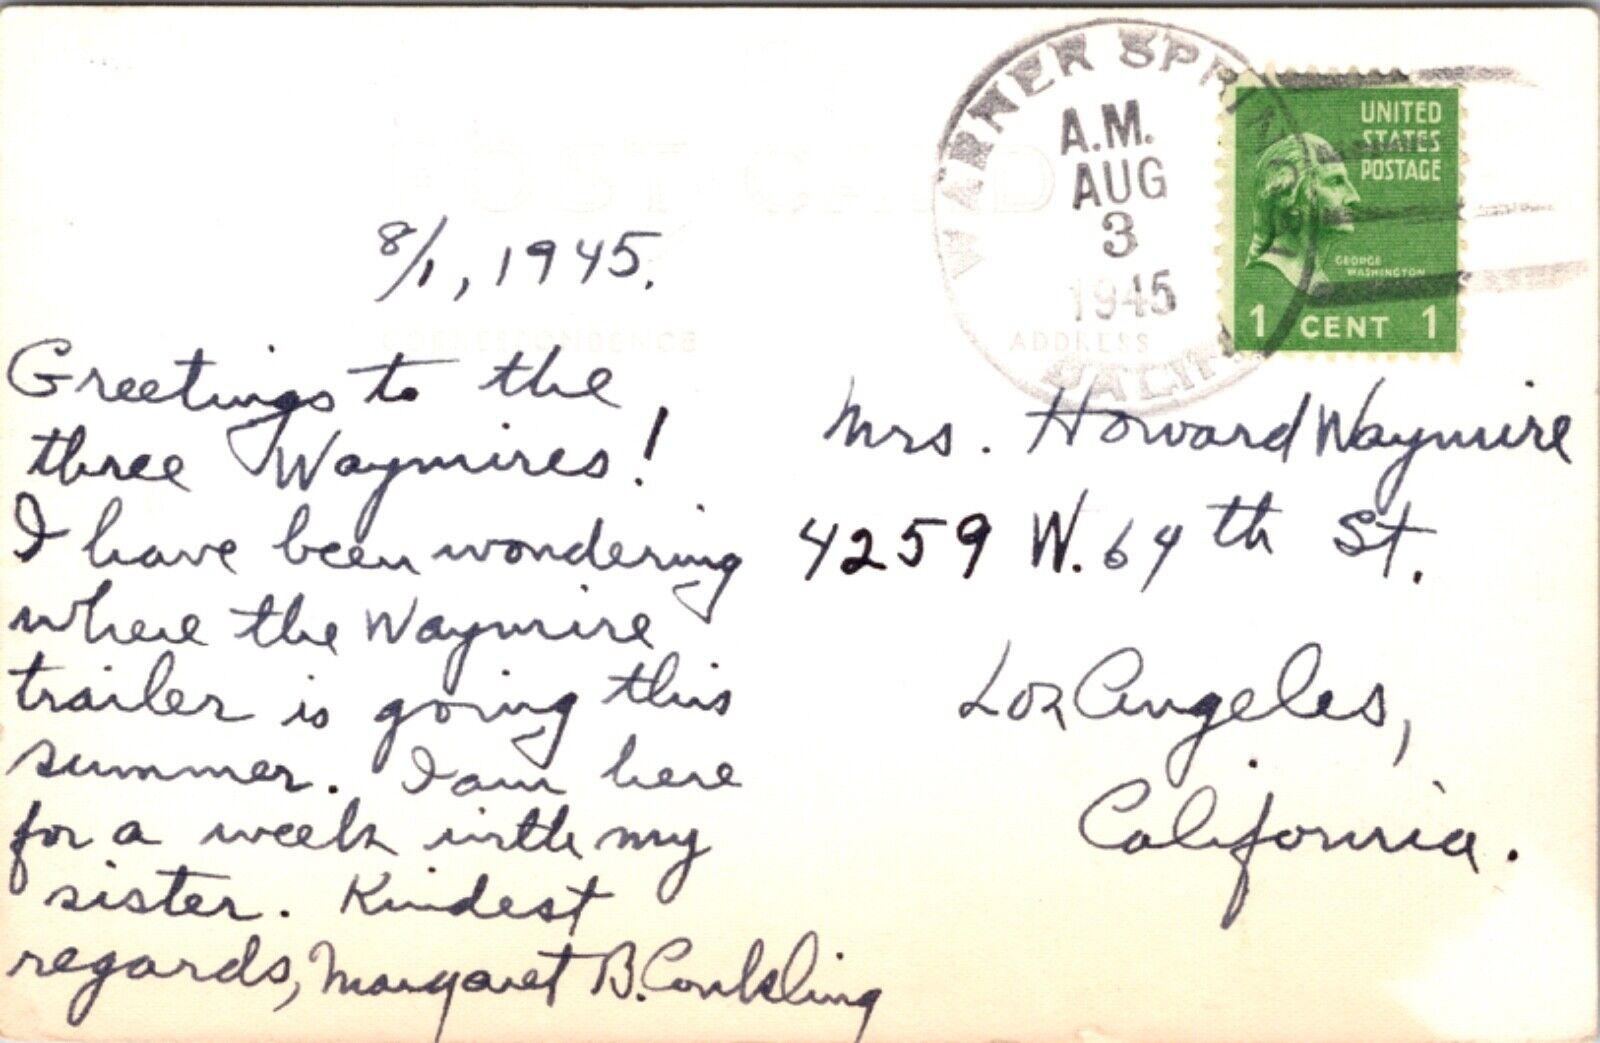 WARNER SPRINGS
A.M.
AUG
3
1945
CALIF.
UNITED
STATES
POSTAGE
GEORGE
WASHINGTON
1 CENT 1
POST CARD
8/1, 1945.
CORRESPONDENCE
ADDRESS
Greetings to the
three Waymires!
I have been wondering
where the Waymire
trailer is going this
summer. I am here
for a week with my
sister. Kindest
regards, Margaret B. Conkling
Mrs. Howard Waymire
4259 W. 64th St.
Los Angeles,
California.